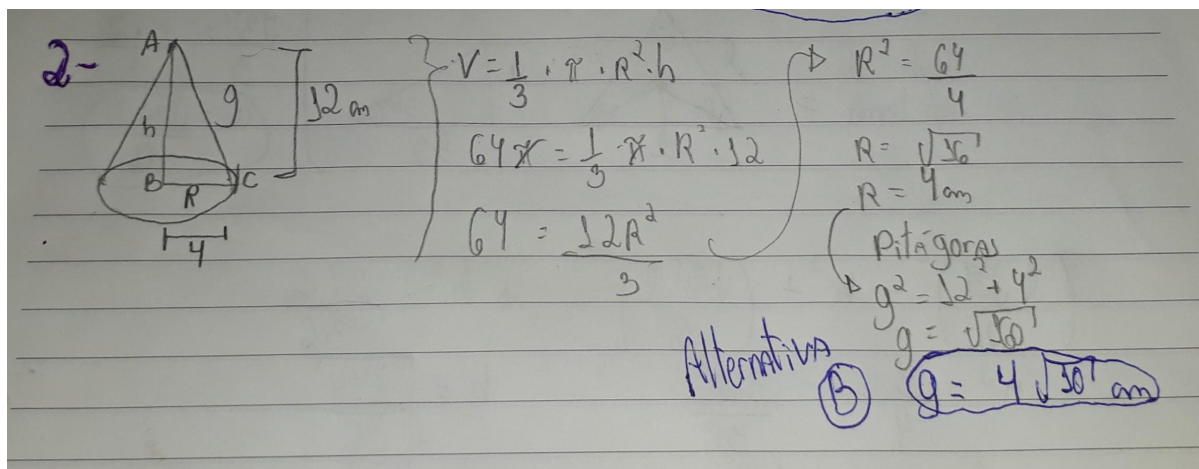 2-
A
h
g
12 cm
B
R
C
4
V = 1/3 · π · R² · h
64π = 1/3 · π · R² · 12
64 = 12R²/3
R² = 64/4
R = √16
R = 4 cm
Pitágoras
g² = 12² + 4²
g = √160
Alternativa
B
g = 4√10 cm